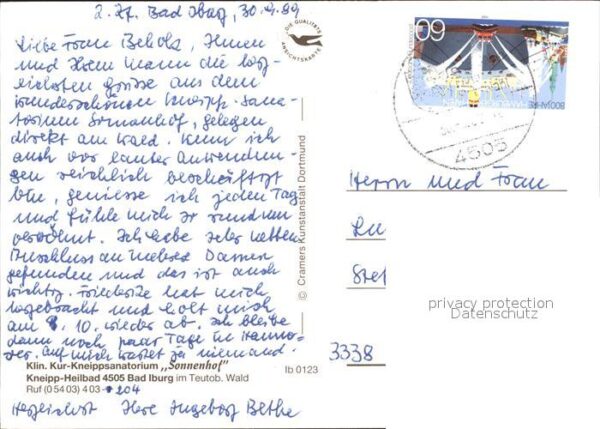 z. Zt. Bad Iburg, 30.9.89
Liebe Frau Ihnen
und Ihrem Mann die herz-
lichsten Grüsse aus dem
wunderschönen Kneipp-Sana-
torium Sonnenhof, gelegen
direkt am Wald. Wenn ich
auch vor lauter Anwendun-
gen reichlich beschäftigt
bin, geniesse ich jeden Tag
und fühle mich so rundrum
verwöhnt. Ich habe sehr netten
Anschluss an mehrere Damen
gefunden und das ist auch
wichtig. Friederike hat mich
hergebracht und holt mich
am 8. 10. wieder ab. Ich bleibe
dann noch paar Tage in Hanno-
ver. auf mich wartet ja niemand.
Klin. Kur-Kneippsanatorium „Sonnenhof"
Kneipp-Heilbad 4505 Bad Iburg im Teutob. Wald
Ruf (0 54 03) 4 03 - 204
Herzlichst Ihre Ingeborg Bethe
Ib 0123
© Cramers Kunstanstalt Dortmund
DIE QUALITÄTS
ANSICHTSKARTE
60
800 JAHRE
4505
Herrn und Frau
3338
privacy protection
Datenschutz